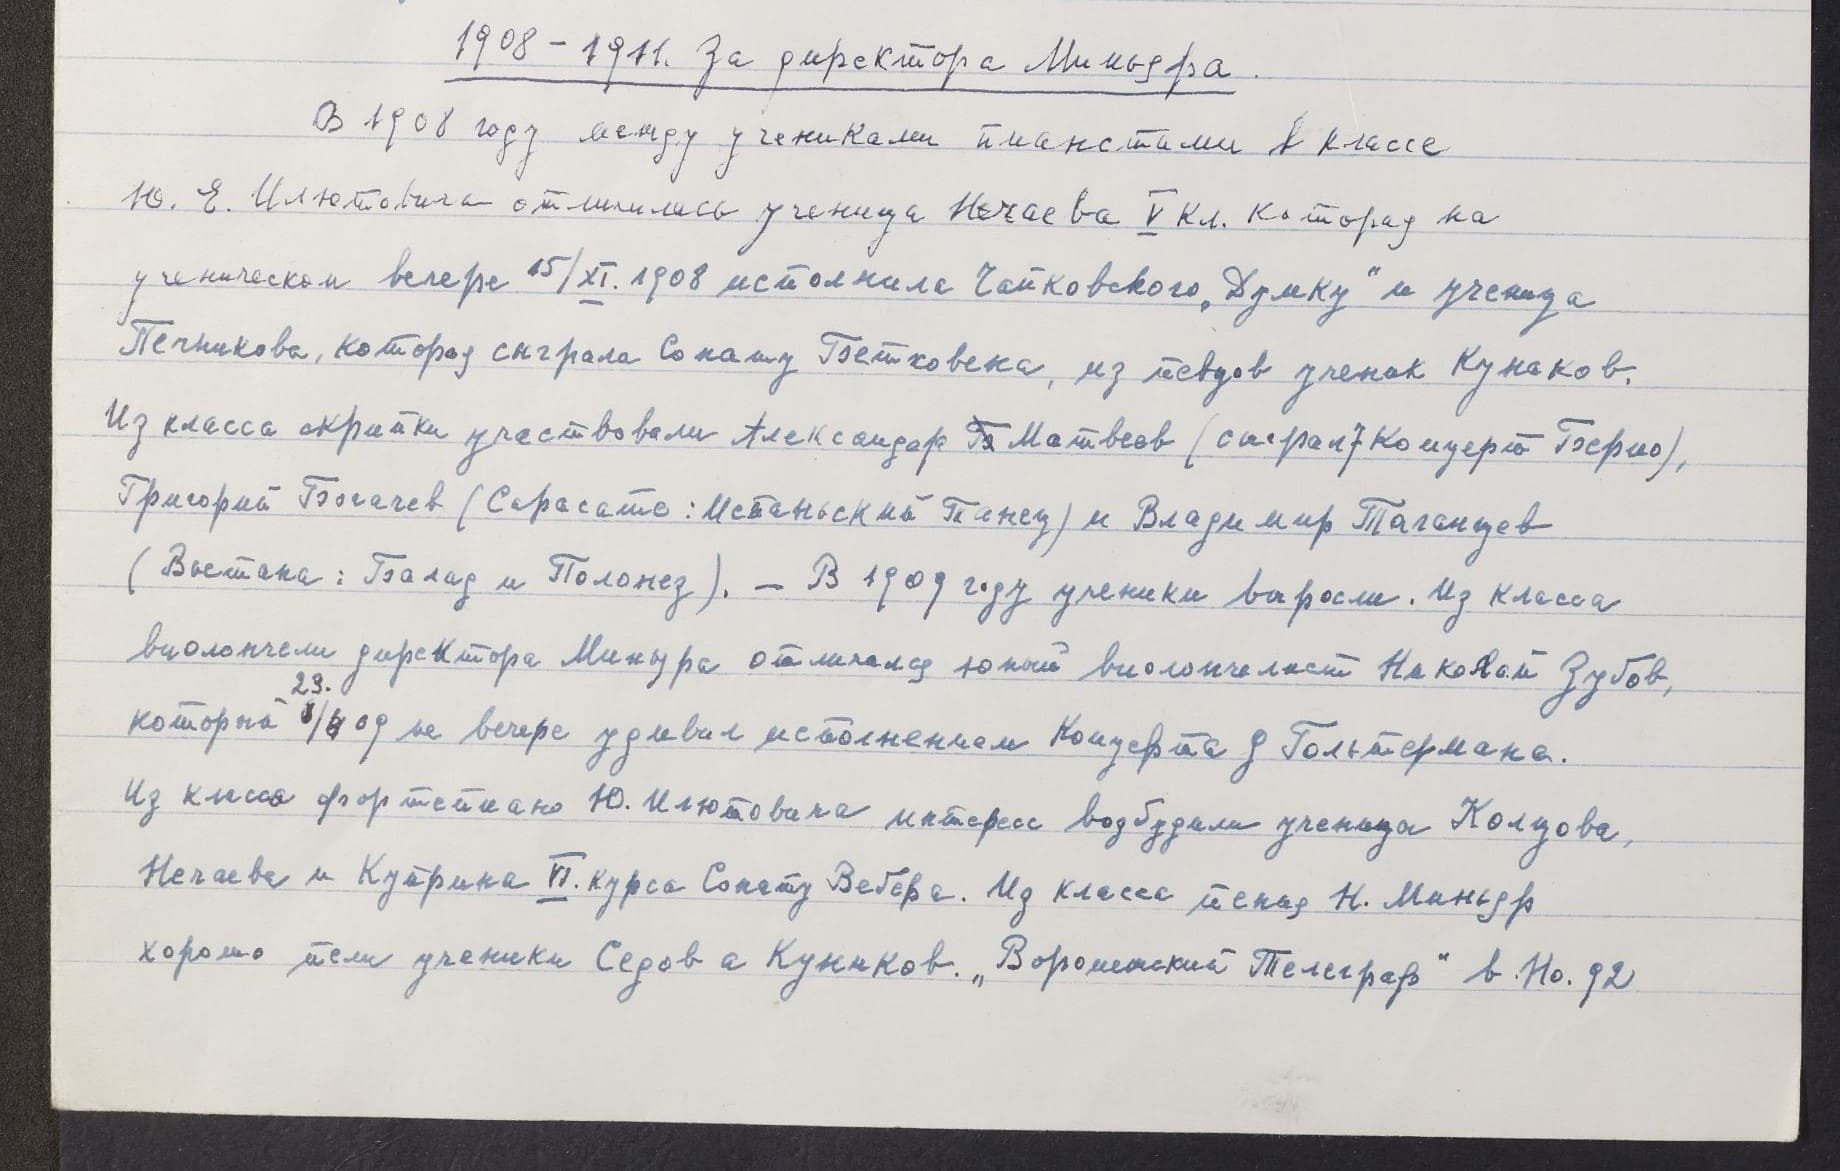 1908 – 1911. За директора Миньяра.
В 1908 году между учениками пианстами в классе
Ю. Е. Илютовича отличились ученица Нечаева V кл. которая на
ученическом вечере 15/XI. 1908 исполнила Чайковского „Думку" и ученица
Печникова, которая сыграла Сонату Бетховена, из певцов ученик Кунаков.
Из класса скрипки участвовали Александар Матвеев (сыграл 7 Концерт Берио),
Григорий Богачев (Сарасате: Испаньский Танец) и Владимир Таганцев
(Вьетана: Балад и Полонез). – В 1909 году ученики выросли. Из класса
виолончели директора Миньяра отличался юный виолончелист Николай Зубов,
который 23. 09 на вечере удивил исполнением Концерта Гольтермана.
Из класса фортепиано Ю. Илютовича интерес возбудили ученица Колцова,
Нечаева и Куприна VI. курса Сонату Вебера. Из класса пения Н. Миньяр
хорошо пели ученики Седов а Кунаков. „Воронежский Телеграф" в No. 92